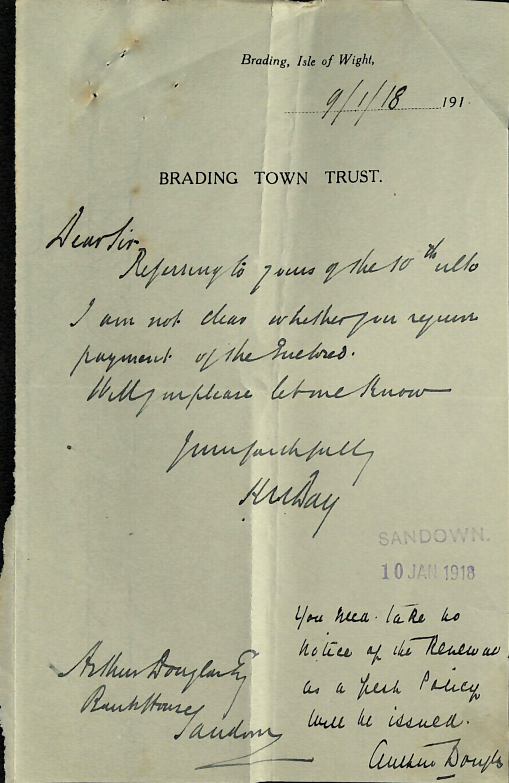 Brading, Isle of Wight,
9/1/18 191
BRADING TOWN TRUST.
Dear Sir
Referring to yours of the 10th ulto
I am not clear whether you require
payment of the Enclosed.
Will you please let me know
Yours faithfully
Day
SANDOWN.
10 JAN 1918
You need take no
notice of the Renewal
as a fresh Policy
will be issued.
Arthur Douglas
Arthur Douglas Esq
Bank House
Sandown